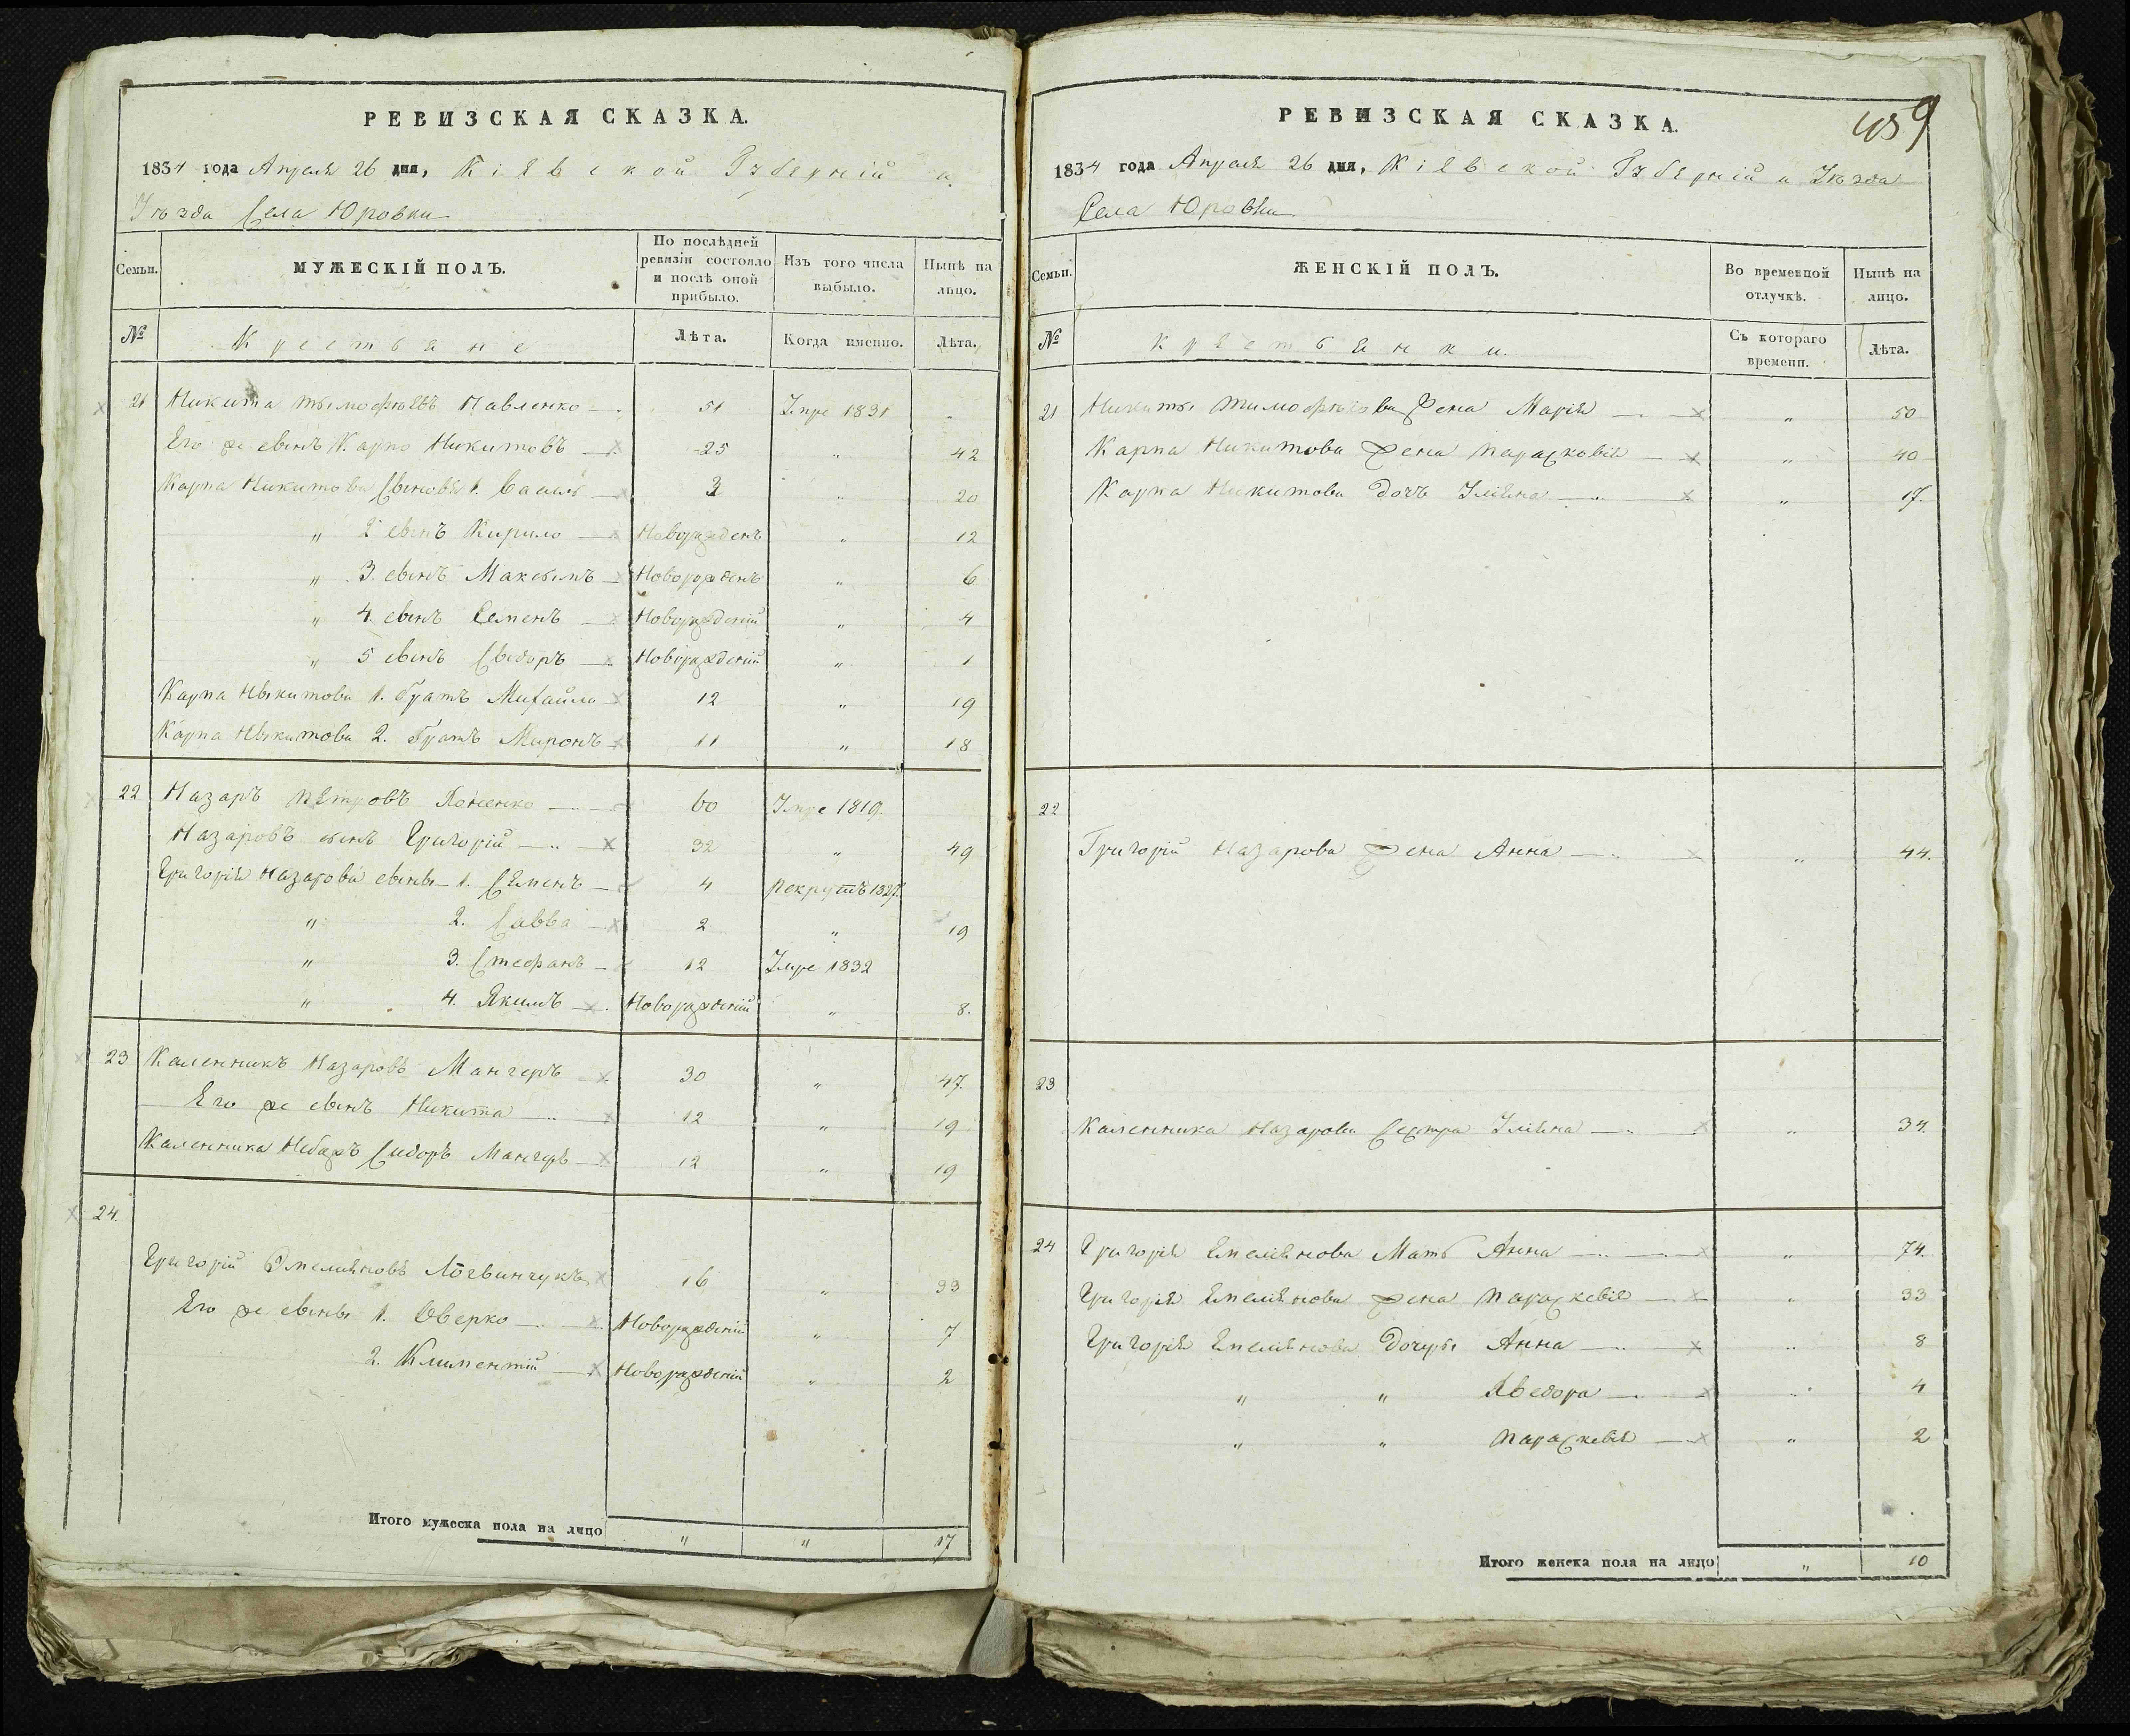 РЕВИЗСКАЯ СКАЗКА.
1834 года Апреля 26 дня, Кіевской Губерніи и
Уезда Села Юровки
Семьи.
МУЖЕСКІЙ ПОЛЪ.
По послѣдней ревизіи состояло и послѣ оной прибыло.
Изъ того числа выбыло.
Нынѣ на лицо.
№
Крестьяне
Лѣта.
Когда именно.
Лѣта.
21 Никита Тымофѣевъ Павленко 51 Умре 1831
Его же сынъ Карпо Никитовъ 25 " 42
Карпа Никитова Сыновья 1. Василь 3 " 20
" 2 сынъ Кирило Новорожденъ " 12
" 3. сынъ Максымъ Новорожденъ " 6
" 4. сынъ Семенъ Новорожденій " 4
" 5 сынъ Сведоръ Новорожденій " 1
Карпа Ныкитова 1. братъ Михайло 12 " 19
Карпа Ныкитова 2. братъ Миронъ 11 " 18
22 Назаръ Петровъ 60 Умре 1819
Назаровъ сынъ Григорій 32 " 49
Григорія Назарова сыны 1. Семенъ 4 рекрутъ 1827
" 2. Савва 2 " 19
" 3. Стефанъ 12 Умре 1832
" 4. Якимъ Новорожденій " 8.
23 Каленникъ Назаровъ Манчеръ 30 " 47.
Его же сынъ Никита 12 " 19
Каленника Небожъ Сидоръ Манчеръ 12 " 19
24.
Григорій Омеляновъ Логвинчукъ 16 " 33
Его же сыны 1. Оверко Новорожденій " 7
2. Климентій Новорожденій " 2
Итого мужеска пола на лицо " " 17
459
РЕВИЗСКАЯ СКАЗКА.
1834 года Апреля 26 дня, Кіевской Губерніи и Уезда
Села Юровки
Семьи.
ЖЕНСКІЙ ПОЛЪ.
Во временной отлучкѣ.
Нынѣ на лицо.
№
Крестьянки.
Съ котораго времени.
Лѣта.
21 Никиты Тимофѣева Жена Марія " 50
Карпа Никитова жена Парасковія " 40
Карпа Никитова дочь Уліяна " 17.
22
Григорій Назарова жена Анна " 44.
23
Каленника Назарова Сестра Уліяна " 34.
24 Григорія Емеліянова Мать Анна " 74.
Григорія Емеліянова жена Параскевія " 33
Григорія Емеліянова Дочеры Анна " 8
" " Яведора " 4
" " Параскевія " 2
Итого женска пола на лицо " 10